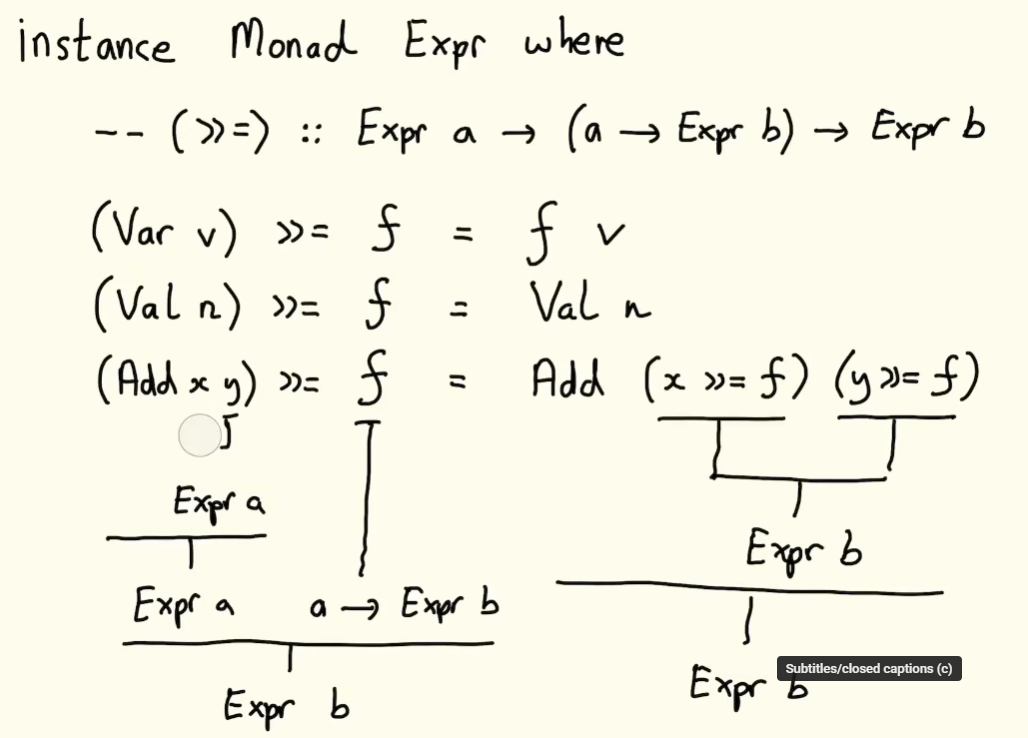 instance Monad Expr where
-- (>>=) :: Expr a → (a → Expr b) → Expr b
(Var v) >>= f = f v
(Val n) >>= f = Val n
(Add x y) >>= f = Add (x >>= f) (y >>= f)
Expr a
Expr b
Expr a a → Expr b
Subtitles/closed captions (c)
Expr b
Expr b